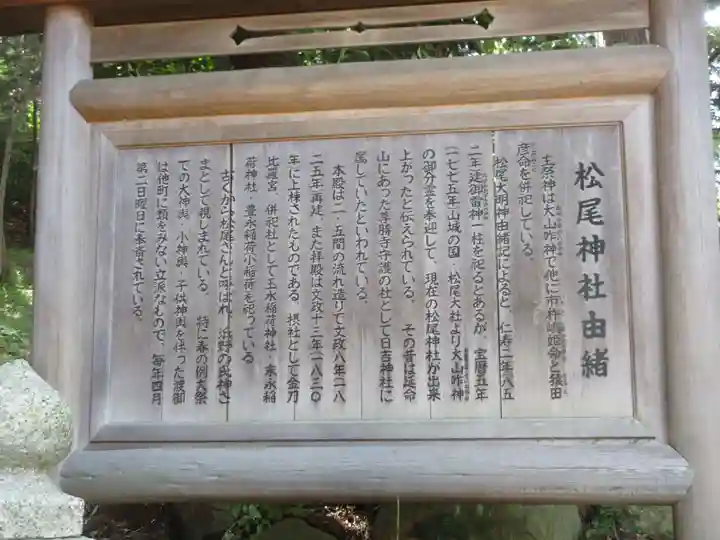 松尾神社由緒
主祭神は大山咋神で他に市杵嶋姫命と猿田
彦命を併祀している。
松尾大明神由緒記によると、仁寿二年(八五
二年)建御雷神一柱を祀るとあるが、宝暦五年
一七七五年山城の国・松尾大社より大山咋神
の御分霊を奉迎して、現在の松尾神社が出来
上がったと伝えられている。その昔は延命
山にあった尊勝寺守護の社として日吉神社に
属していたといわれている。
本殿は二・五間の流れ造りで文政八年一八
二五年再建、また拝殿は文政十三年一八三〇
年に上棟されたものである。摂社として金刀
比羅宮、併祀社として玉永稲荷神社・末永稲
荷神社・豊永稲荷小稲荷を祀っている
古くから松尾さんと呼ばれ、浜野の氏神さ
まとして親しまれている。特に春の例大祭
での大神輿・小神輿・子供神輿を伴った渡御
は他町に類をみない立派なもので、毎年四月
第二日曜日に奉斎されている。